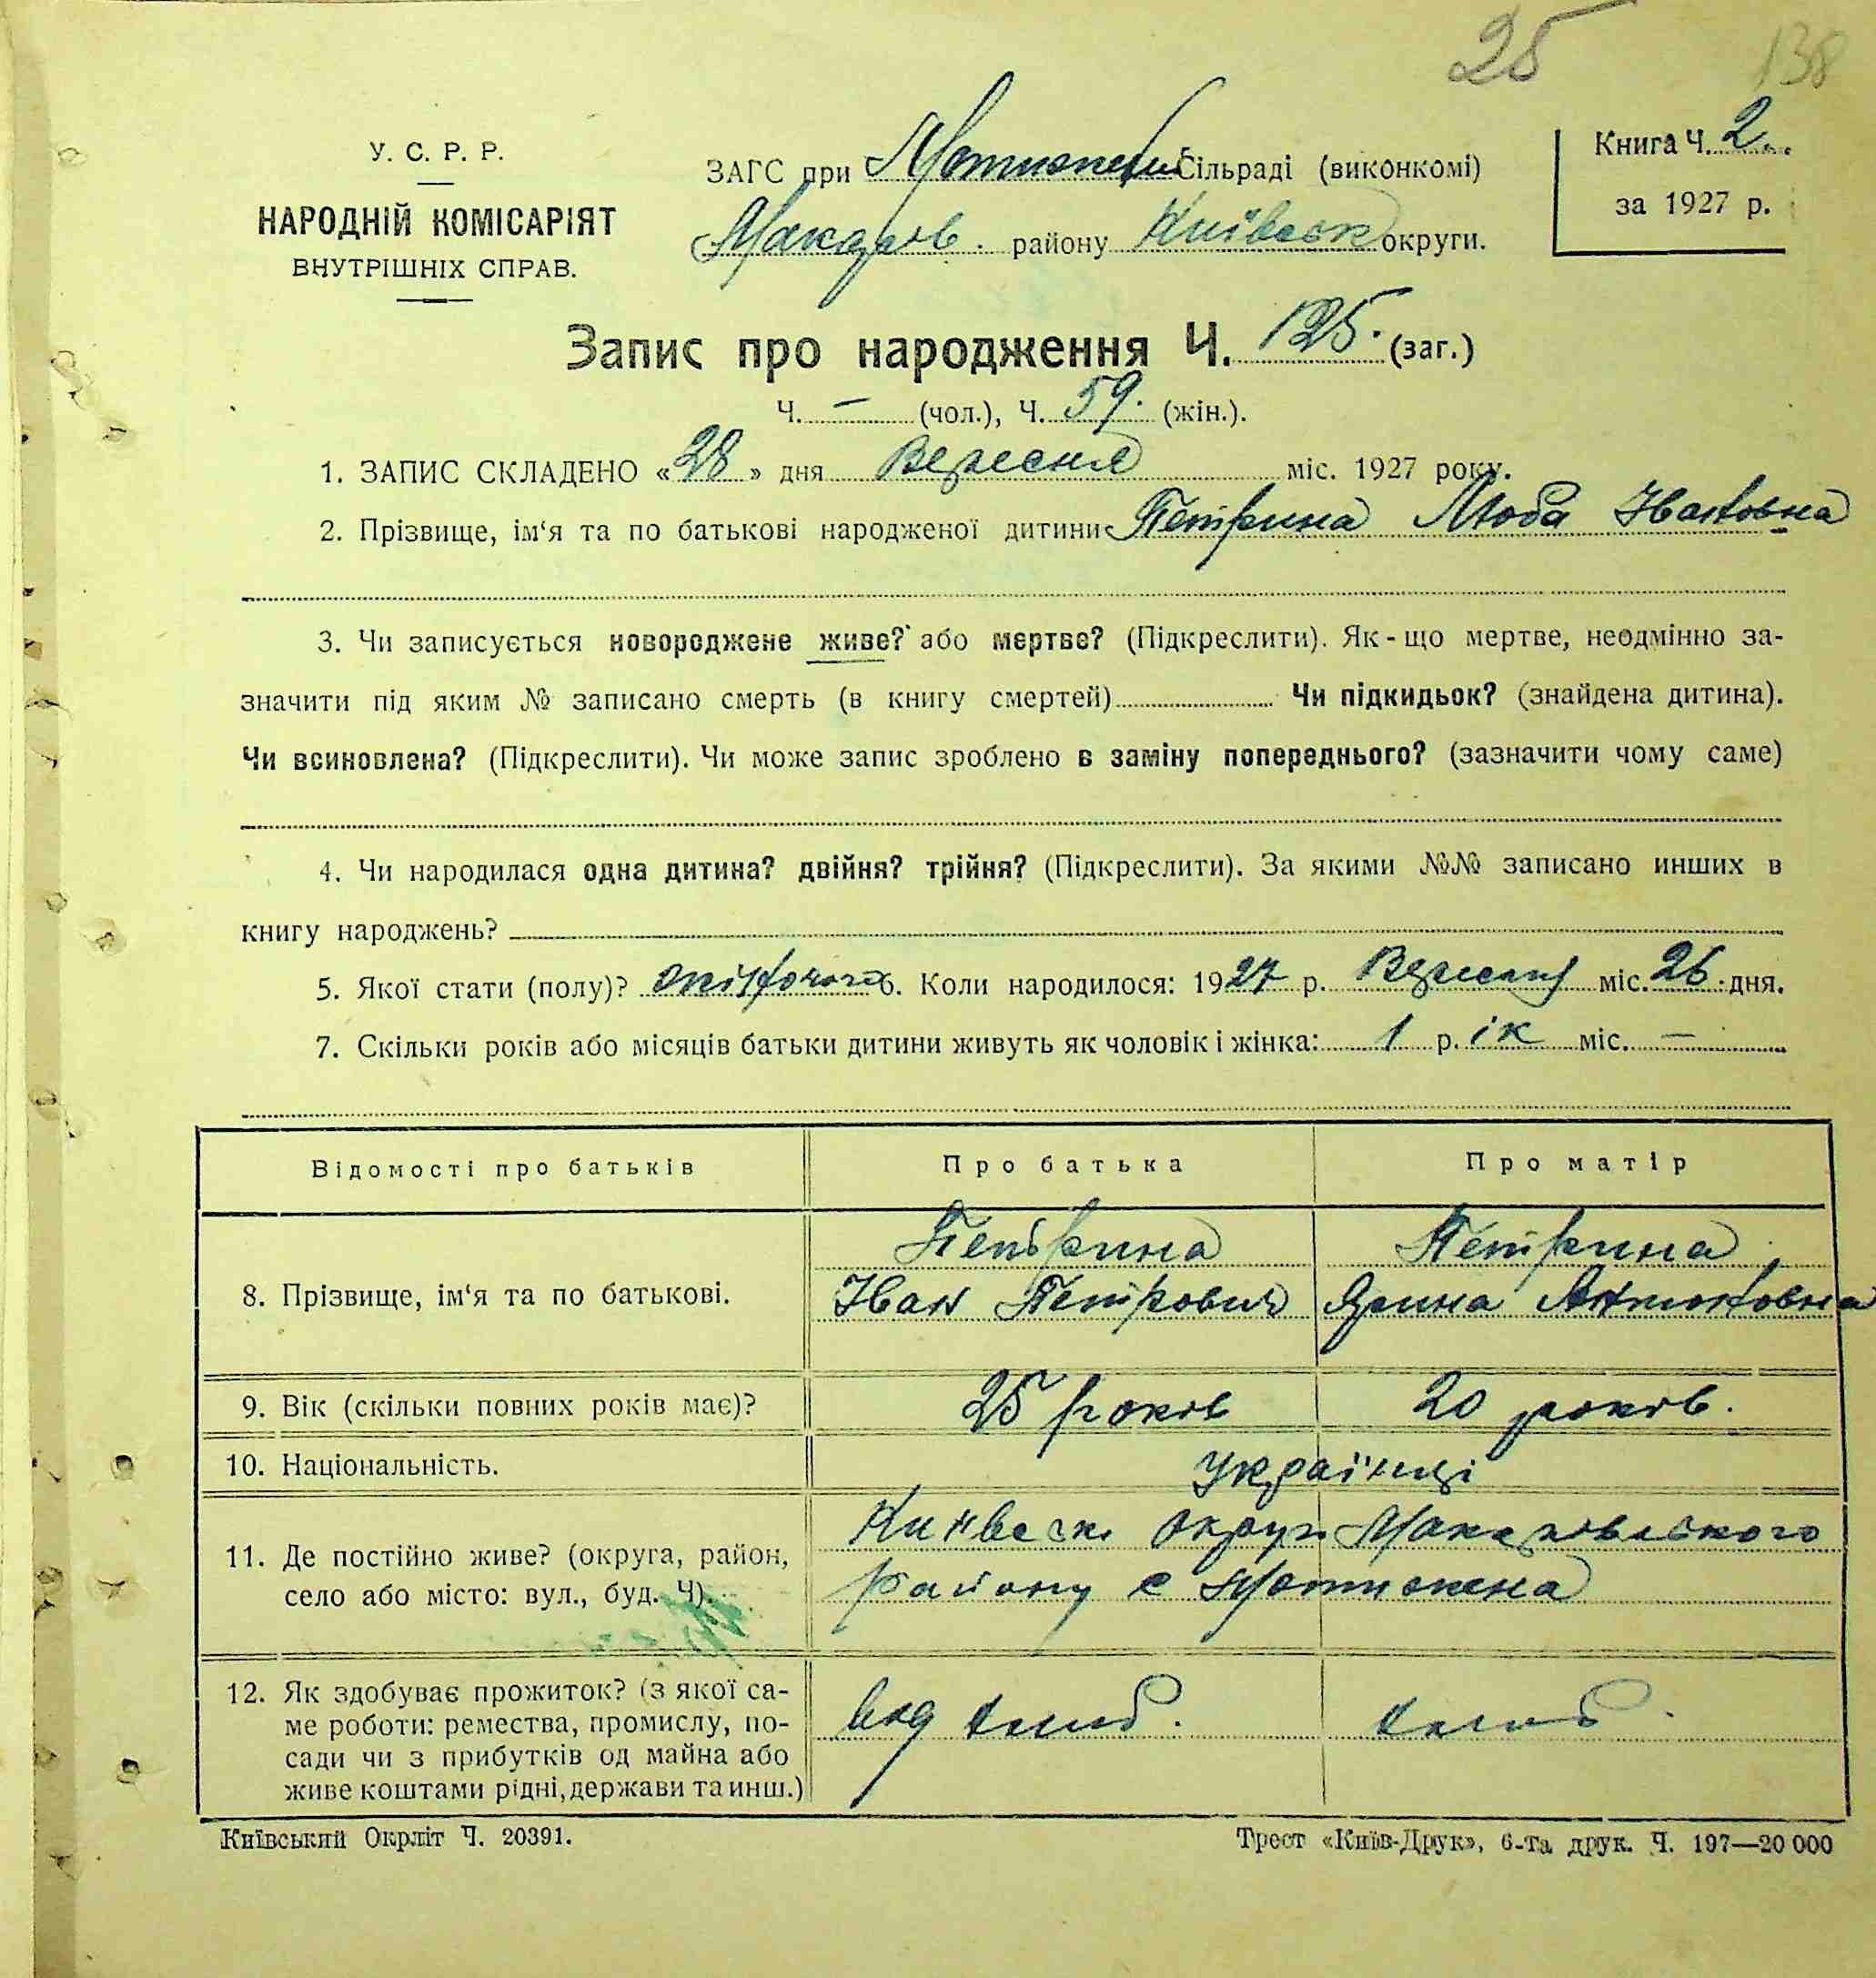 25 138
У. С. Р. Р.
НАРОДНІЙ КОМІСАРІЯТ
ВНУТРІШНІХ СПРАВ.
ЗАГС при Сільраді (виконкомі)
Макарів. району Київськ округи.
Книга Ч. 2
за 1927 р.
Запис про народження Ч. 125. (заг.)
Ч. — (чол.), Ч. 59. (жін.).
1. ЗАПИС СКЛАДЕНО «28» дня Вересня міс. 1927 року.
2. Прізвище, ім‘я та по батькові народженої дитини Петрина Люба Івановна
3. Чи записується новороджене живе? або мертве? (Підкреслити). Як-що мертве, неодмінно за-
значити під яким № записано смерть (в книгу смертей) Чи підкидьок? (знайдена дитина).
Чи всиновлена? (Підкреслити). Чи може запис зроблено в заміну попереднього? (зазначити чому саме)
4. Чи народилася одна дитина? двійня? трійня? (Підкреслити). За якими №№ записано инших в
книгу народжень?
5. Якої стати (полу)? 6. Коли народилося: 1927 р. Вересня міс. 26 дня.
7. Скільки років або місяців батьки дитини живуть як чоловік і жінка: 1 р.ік міс. —
Відомості про батьків Про батька Про матір
8. Прізвище, ім‘я та по батькові.
Петрина
Іван Петрович
Петрина
Ярина Антоновна
9. Вік (скільки повних років має)? 25 років 20 років.
10. Національність. Українці
11. Де постійно живе? (округа, район,
село або місто: вул., буд. Ч).
Київськ округи Макарівського
району с Мотижена
12. Як здобуває прожиток? (з якої са-
ме роботи: ремества, промислу, по-
сади чи з прибутків од майна або
живе коштами рідні, держави та инш.)
від хліб. хліб.
Київський Окрліт Ч. 20391.
Трест «Київ-Друк», 6-та друк. Ч. 197—20 000